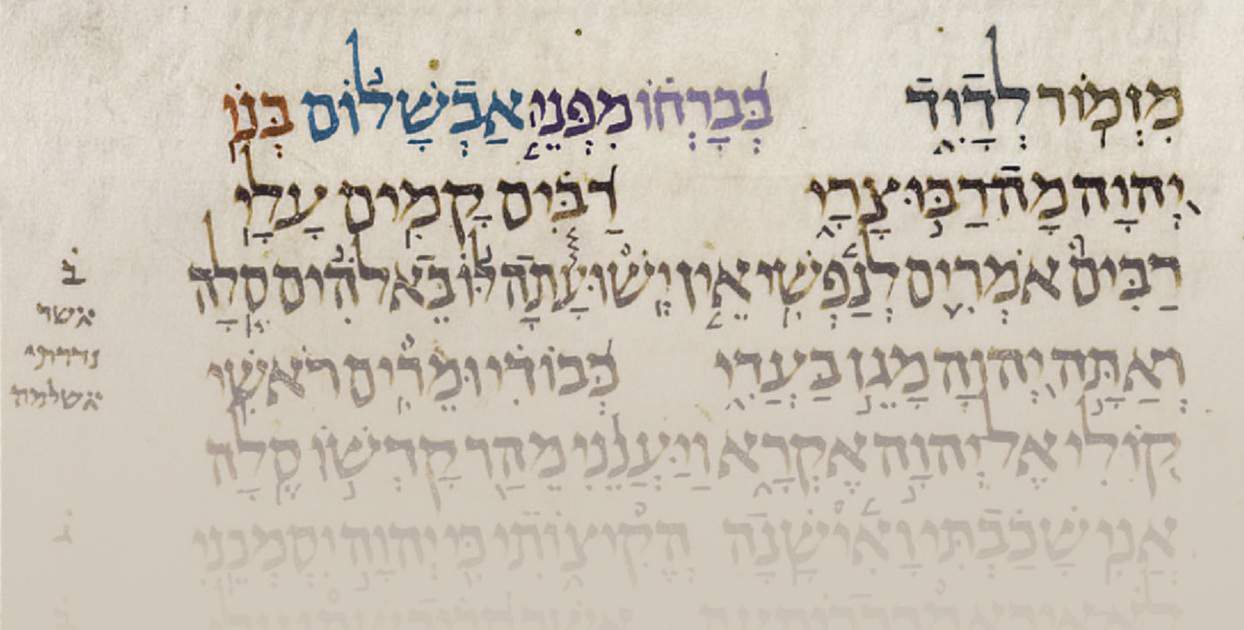 מִזְמ֥וֹר לְדָוִ֑ד בְּ֝בָרְח֗וֹ מִפְּנֵ֤י אַבְשָׁל֬וֹם בְּנֽוֹ
יְ֭הוָה מָֽה רַבּ֣וּ צָרָ֑י רַ֝בִּ֗ים קָמִ֥ים עָלָֽי
רַבִּים֮ אֹמְרִ֪ים לְנַ֫פְשִׁ֥י אֵ֤ין יְֽשׁוּעָ֓תָה לּ֬וֹ בֵֽאלֹהִ֬ים סֶֽלָה
וְאַתָּ֣ה יְ֭הוָה מָגֵ֣ן בַּעֲדִ֑י כְּ֝בוֹדִ֗י וּמֵרִ֥ים רֹאשִֽׁי
ק֭וֹלִי אֶל יְהוָ֣ה אֶקְרָ֑א וַיַּעֲנֵ֨נִי מֵהַ֖ר קָדְשׁ֣וֹ סֶֽלָה
אֲנִ֥י שָׁכַ֗בְתִּי וָאִ֫ישָׁ֥נָה הֱקִיצ֑וֹתִי כִּ֖י יְהוָ֣ה יִסְמְכֵֽנִי
בֹ
אשר
נדרתי
אשלמה